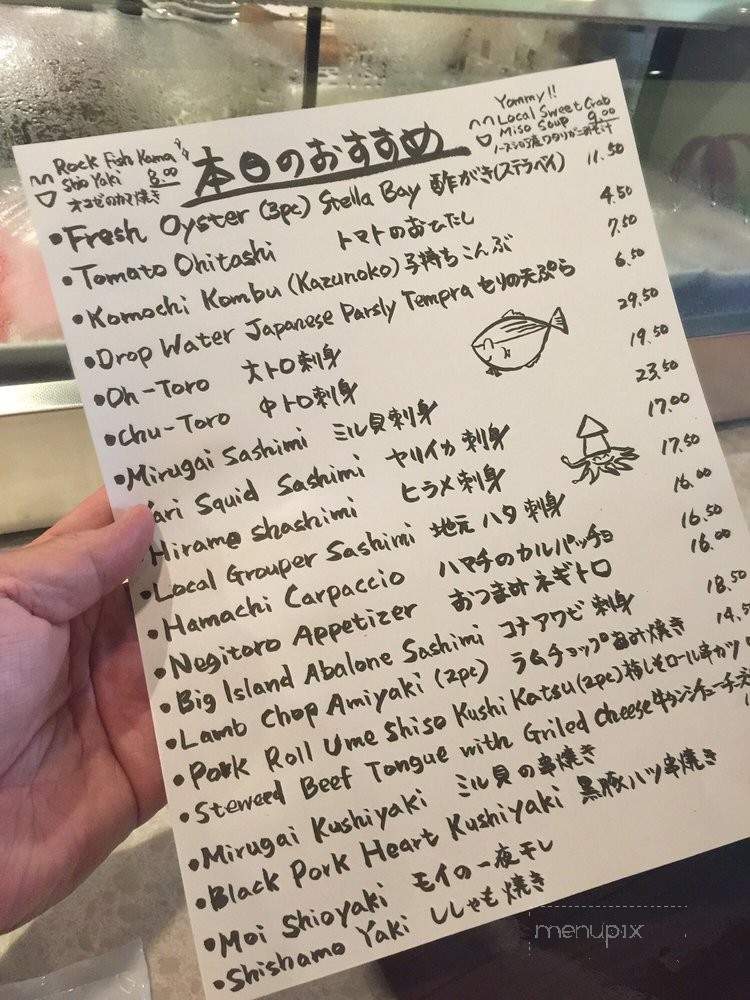 Rock Fish Kama
Shio Yaki 8.00
オコゼのカマ焼き
本日のおすすめ
Yommy!!
Local Sweet Crab
Miso Soup 9.00
ノースショア産ワタリガニみそ汁
•Fresh Oyster (3pc) Stella Bay 酢がき(ステラベイ) 11.50
•Tomato Ohitashi トマトのおひたし 4.50
•Komochi Kombu (Kazunoko) 子持ちこんぶ 7.50
•Drop Water Japanese Parsly Tempra せりの天ぷら 6.50
•Oh-Toro 大トロ刺身 29.50
•Chu-Toro 中トロ刺身 19.50
•Mirugai Sashimi ミル貝刺身 23.50
Yari Squid Sashimi ヤリイカ刺身 17.00
Hirame shashimi ヒラメ刺身 17.50
•Local Grouper Sashimi 地元ハタ刺身 16.00
•Hamachi Carpaccio ハマチのカルパッチョ 16.50
•Negitoro Appetizer おつまみネギトロ 16.00
•Big Island Abalone Sashimi コナアワビ刺身 18.50
•Lamb Chop Amiyaki (2pc) ラムチョップあみ焼き 14.5
•Pork Roll Ume Shiso Kushi Katsu (2pc) 梅しそロール串カツ
•Steweed Beef Tongue with Griled Cheese 牛タンシチューチーズ
•Mirugai Kushiyaki ミル貝の串焼き
•Black Pork Heart Kushiyaki 黒豚ハツ串焼き
•Moi Shioyaki モイの一夜干し
•Shishamo Yaki ししゃも焼き
menupix